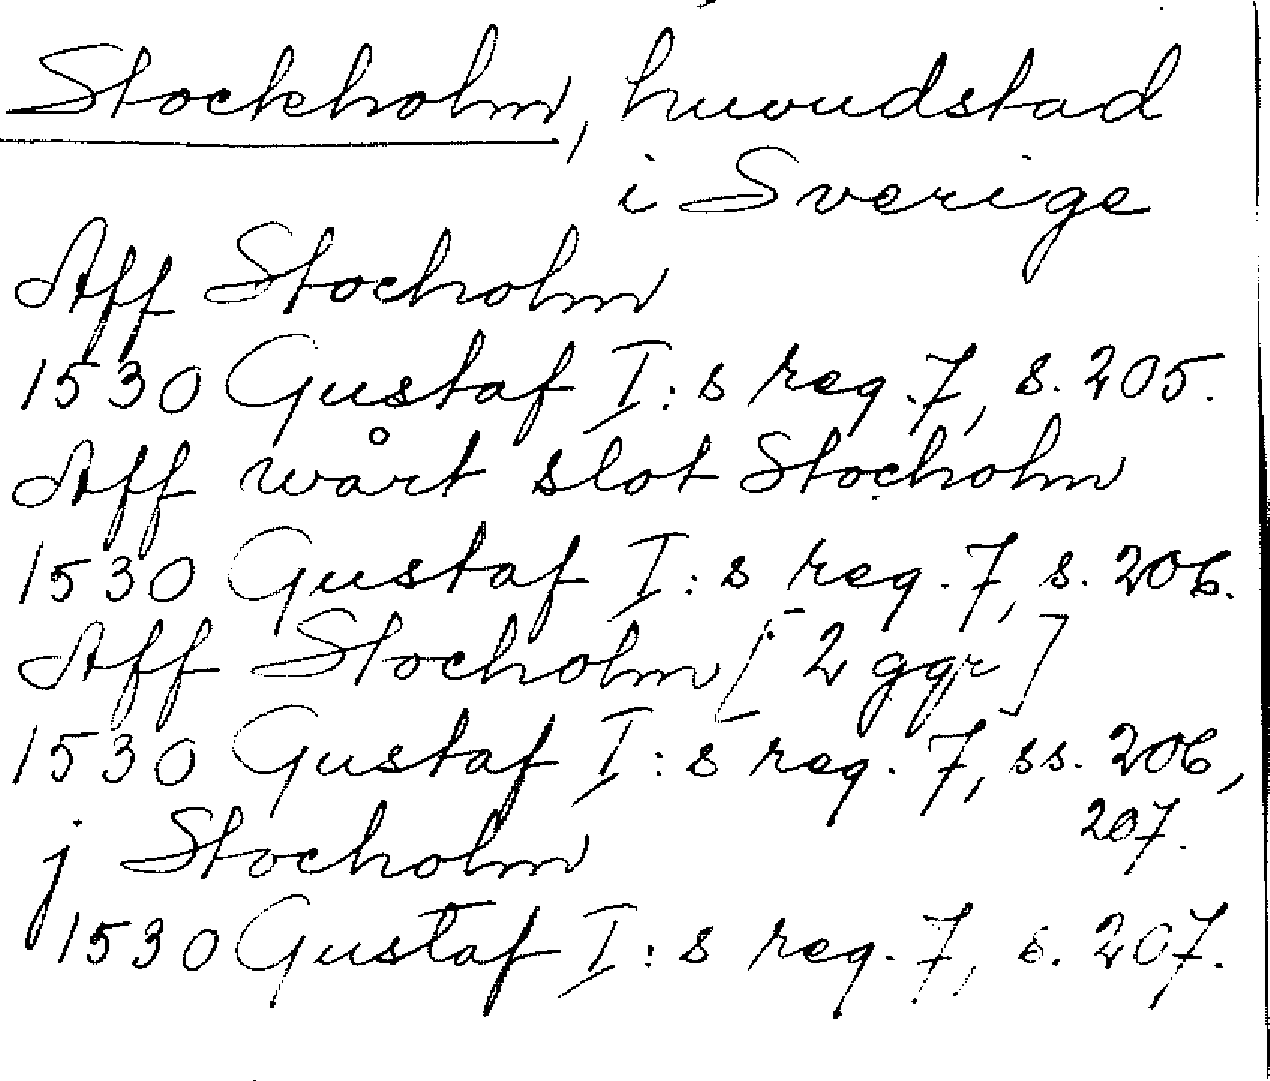 Stockholm, huvudstad
i Sverige
Aff Stocholm
1530 Gustaf I:s reg. 7, s. 205.
Aff wårt slot Stocholm
1530 Gustaf I:s reg. 7, s. 206.
Aff Stocholm [2 ggr]
1530 Gustaf I:s reg. 7, ss. 206,
207.
j Stocholm
1530 Gustaf I:s reg. 7, s. 207.